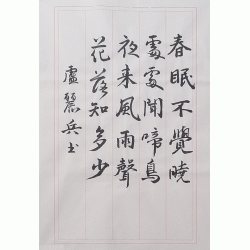 春眠不覺曉
處處聞啼鳥
夜来風雨聲
花落知多少
盧麗兵书